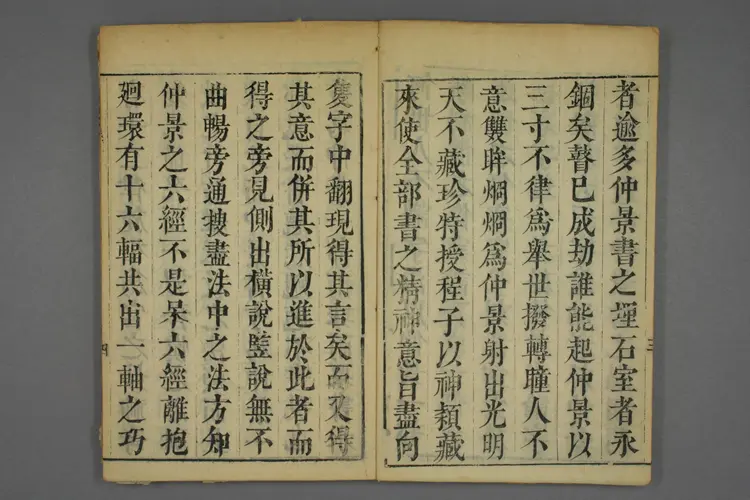 者逾多仲景書之堙石室者永
錮矣瞽已成劫誰能起仲景以
三寸不律為舉世撥轉瞳人不
意雙眸烱烱為仲景射出光明
天不藏珍特授程子以神頴藏
來使全部書之精神意旨盡向
三
隻字中翻現得其言矣而又得
其意而併其所以進於此者而
得之旁見側出橫說竪說無不
曲暢旁通搜盡法中之法方知
仲景之六經不是呆六經離抱
廻環有十六輻共出一軸之巧
四